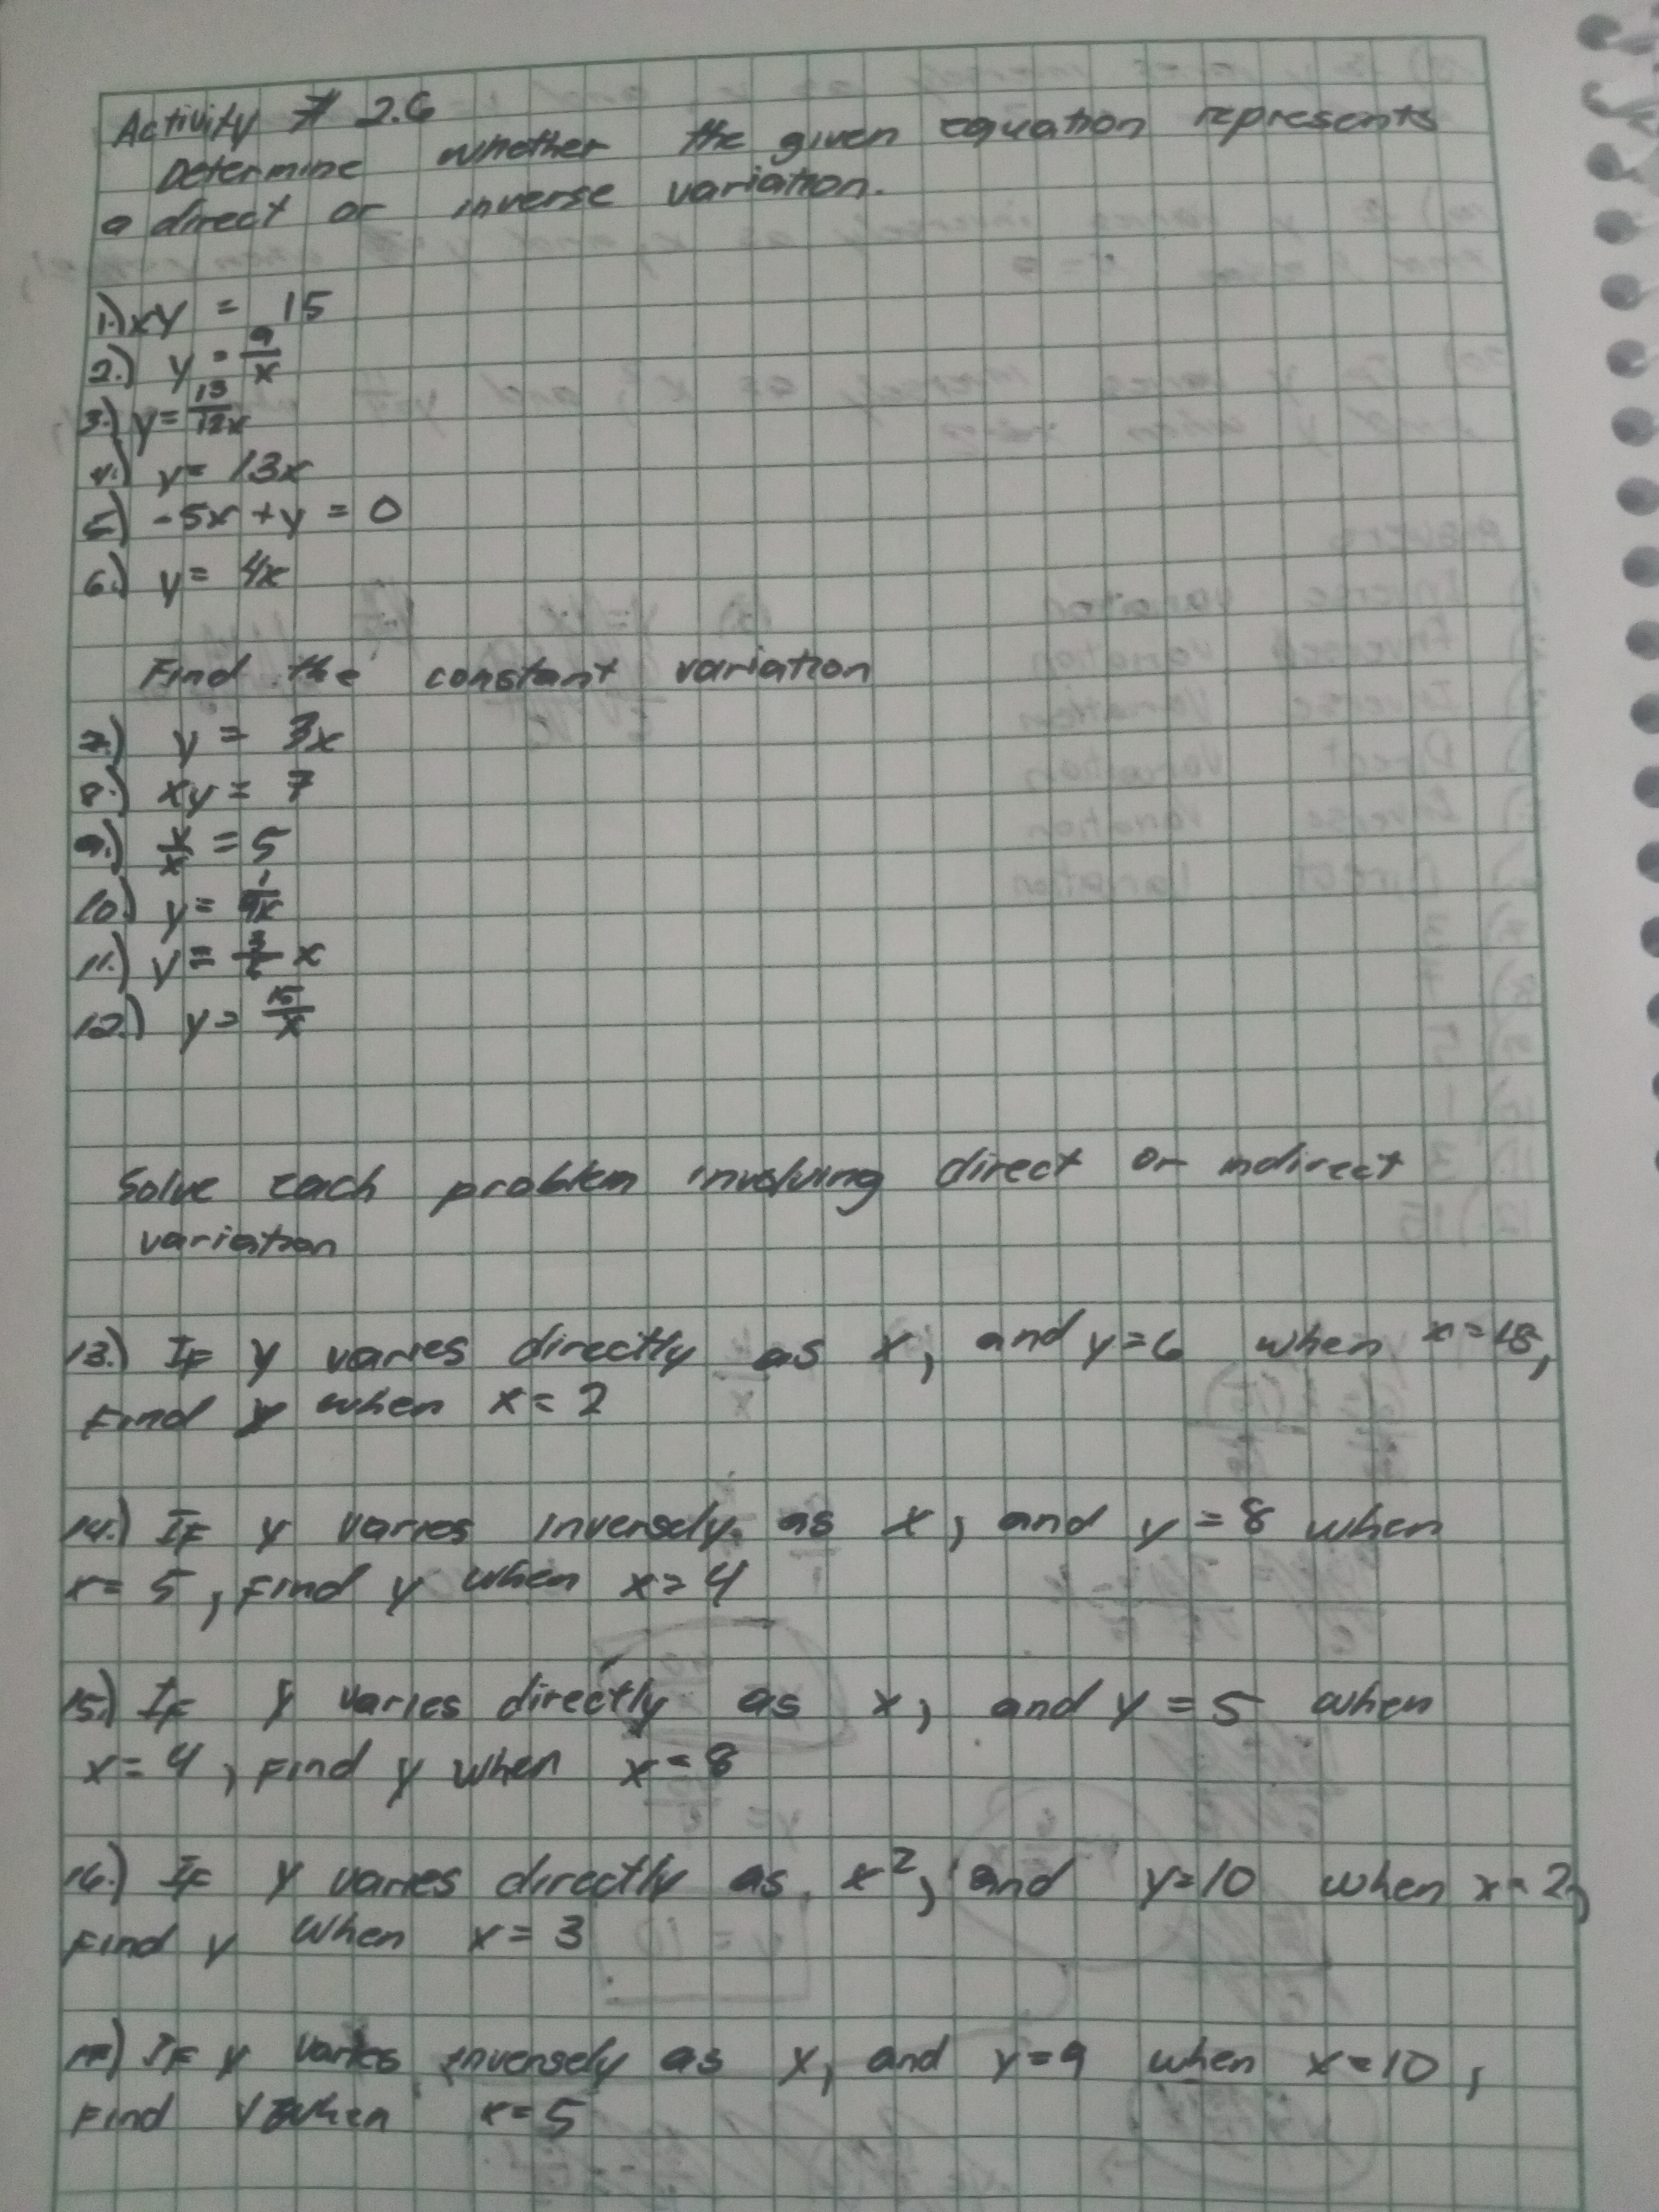 Activity # 2.6
Determine whether the given equation represents
a direct or inverse variation.
1.) xy = 15
2.) y = 9/x
3.) y = 13/12x
4.) y = 13x
5.) -5x + y = 0
6.) y = 4x
Find the constant variation
7.) y = 3x
8.) xy = 7
9.) y/x = 5
10.) y =
11.) y = x
12.) y = 15/x
Solve each problem involving direct or indirect
variation
13.) If y varies directly as x, and y=6 when x=18,
Find y when x = 2
14.) If y varies inversely as x, and y = 8 when
x = 5, Find y when x = 4
15.) If y varies directly as x, and y = 5 when
x = 4, Find y when x = 8
16.) If y varies directly as x², and y=10 when x=2,
Find y When x = 3
17.) If y varies inversely as x, and y=9 when x=10,
Find y when x=5